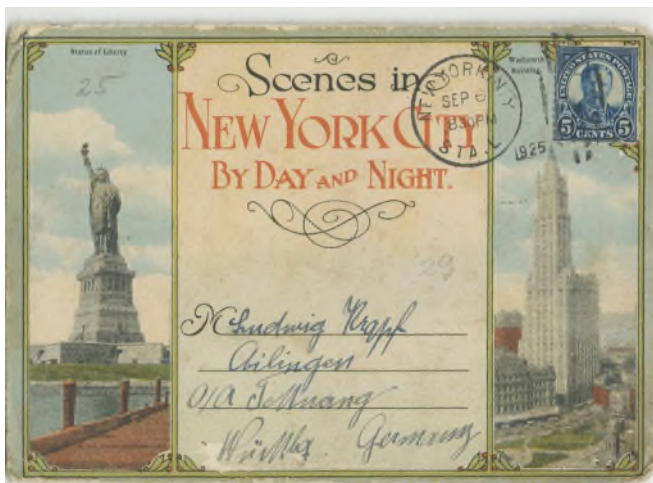 Statue of Liberty
25
Scenes in
NEW YORK CITY
BY DAY AND NIGHT.
Woolworth
Building
NEW YORK, N.Y.
SEP 6
8 30 PM
STA. L
1925
UNITED STATES POSTAGE
5 CENTS 5
29
M Ludwig Krapf
Ailingen
O/A Tettnang
Württbg. Germany